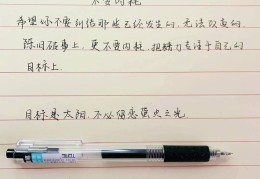 不要内耗
希望你不要纠结那些已经发生的,无法改变的,
陈旧破事上,更不要内耗,把精力专注于自己的
目标上.
目标是太阳,不必留恋萤火之光.